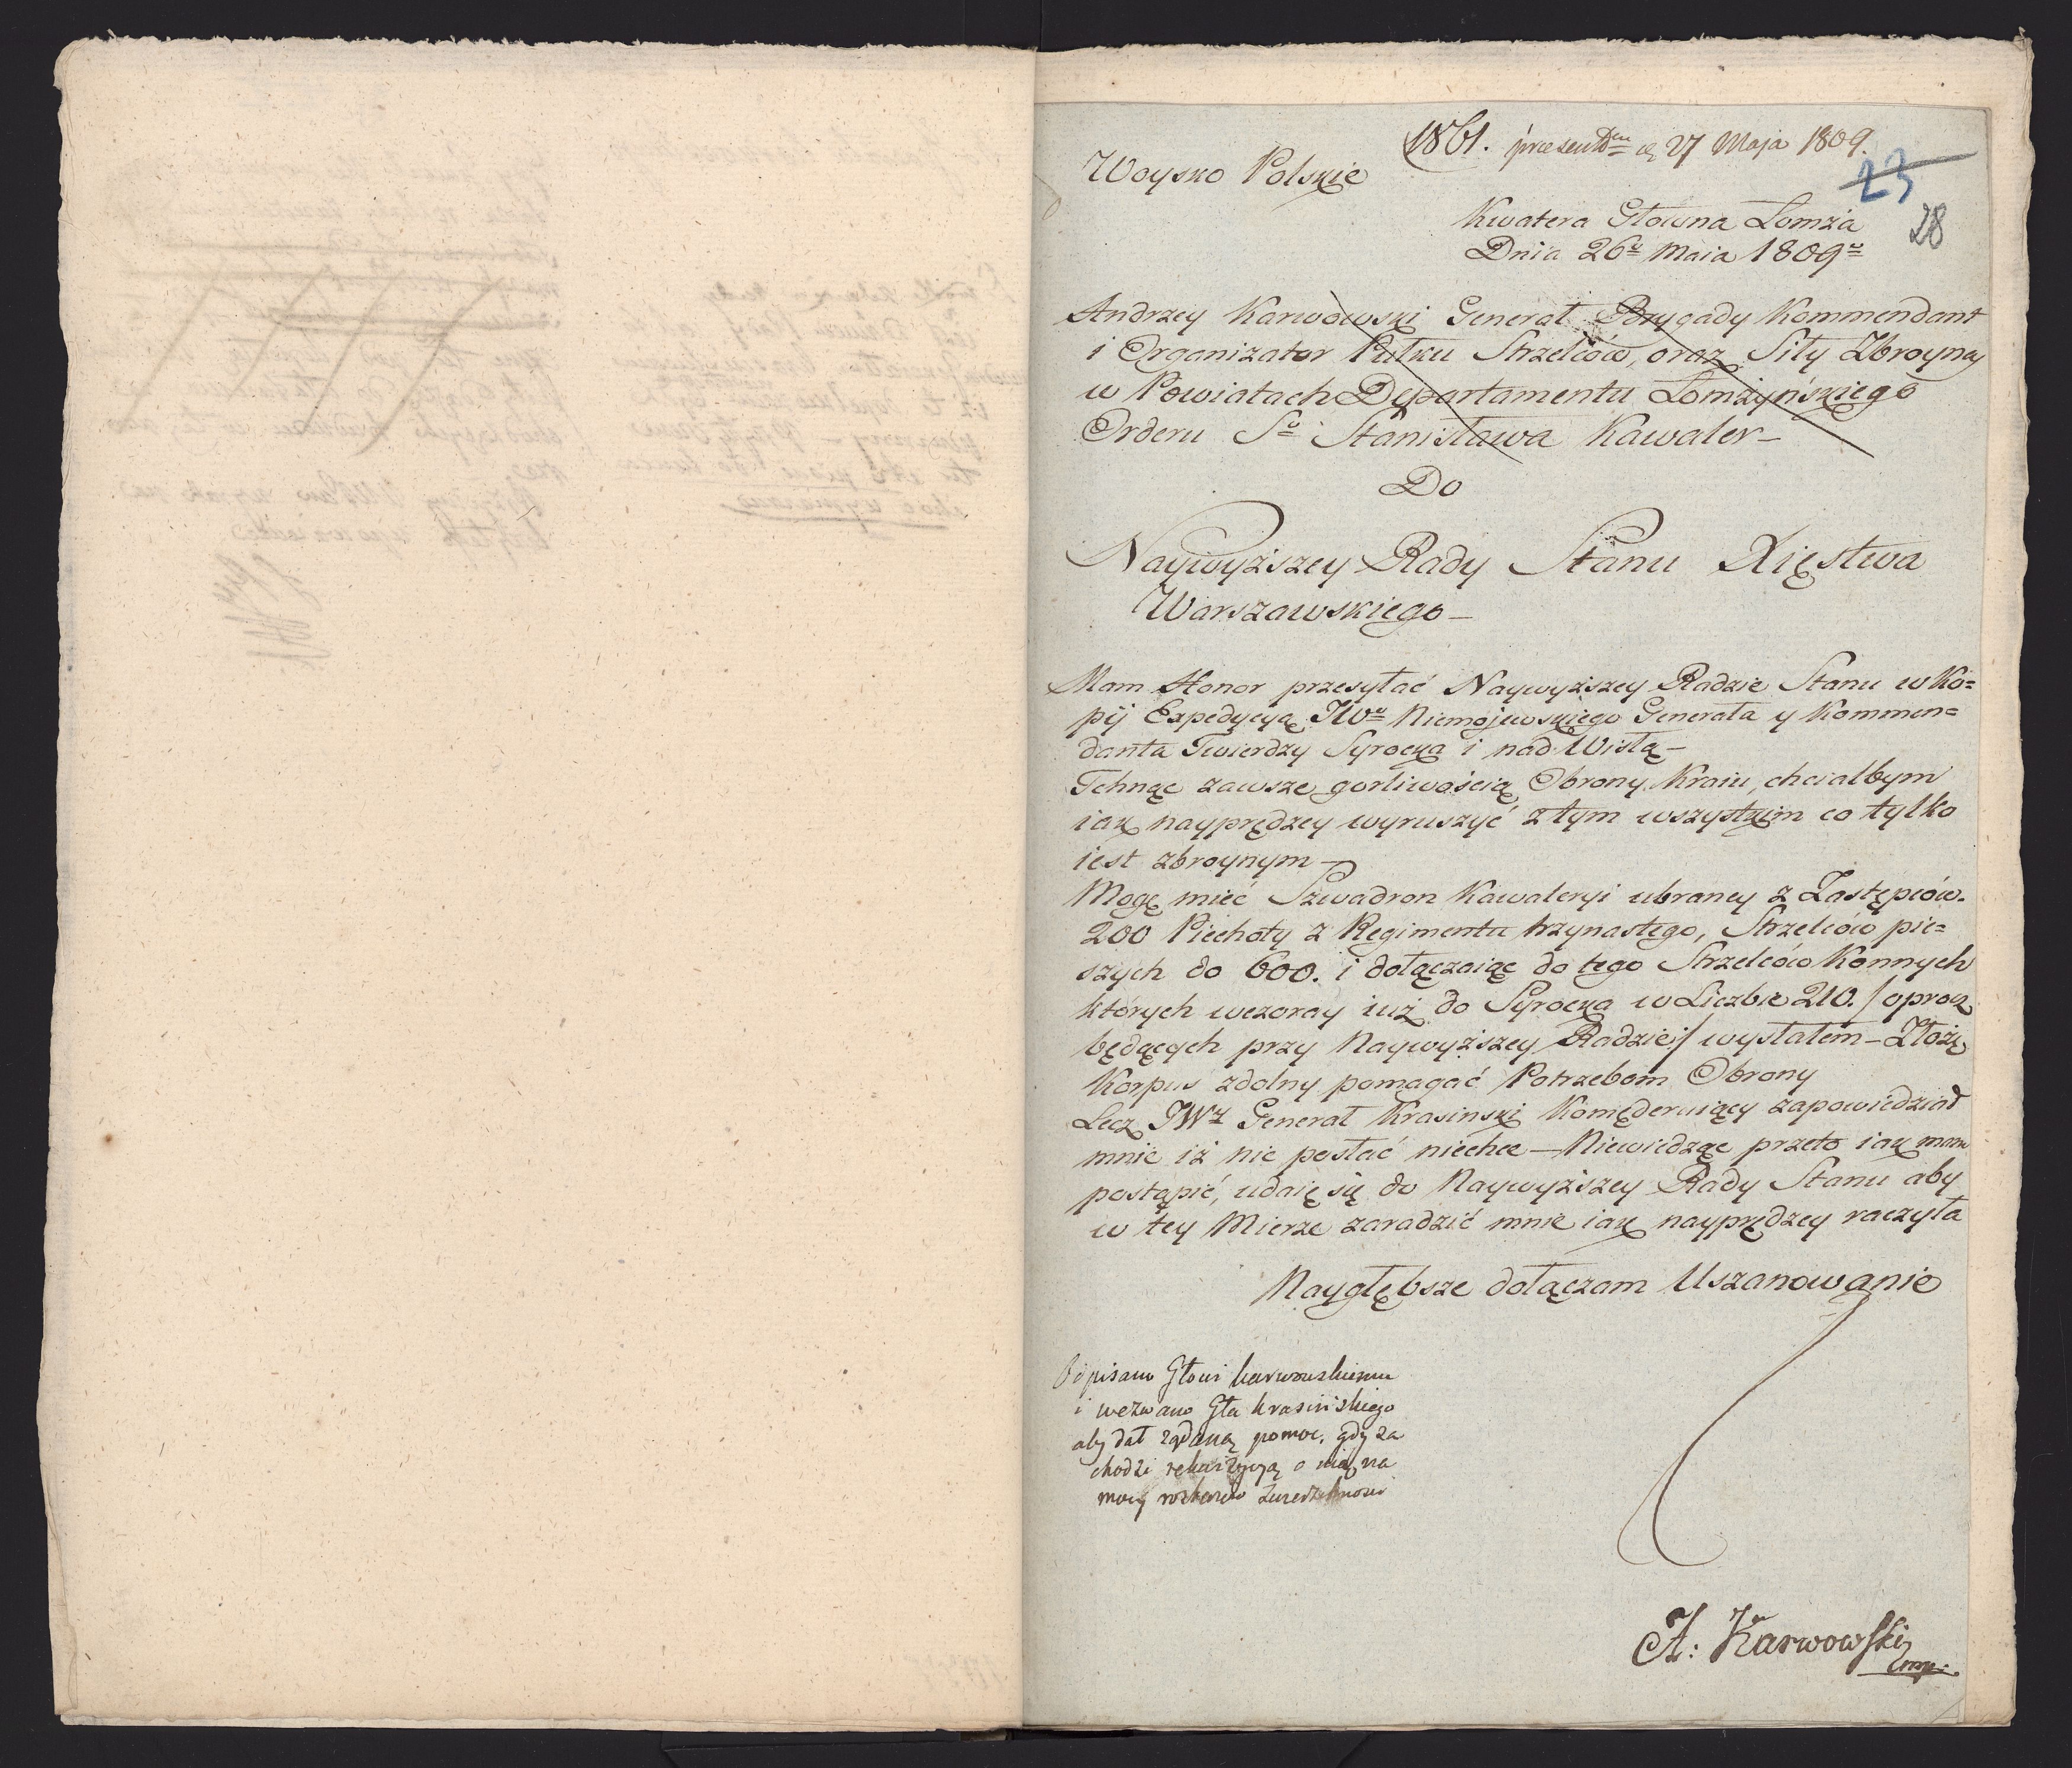 1861. praesentm d. 27 Maja 1809.
Woysko Polskie
23
28
Kwatera Głowna Łomza
Dnia 26º Maia 1809º
Andrzey Karwowski Generał Brygady Kommendant
i Organizator Pułku Strzelców, oraz Siły Zbroyney
w Powiatach Departamentu Łomżyńskiego
Orderu Sº Stanisława Kawaler –
Do
Naywyższey Rady Stanu Xięstwa
Warszawskiego –
Mam Honor przesyłać Naywyższey Radzie Stanu w Ko=
pij Expedycyą JWº Niemojewskiego Generała y Kommen=
danta Twierdzy Syrocka i nad Wisłą –
Tchnąc zawsze gorliwością Obrony Kraiu, chciałbym
iak nayprędzey wyruszyć z tym wszystkim co tylko
iest zbroynym –
Mogę mieć Szwadron Kawaleryi ubraney z Zastępców.
200 Piechoty z Regimentu trzynastego, Strzelców pie=
szych do 600. i dołączaiąc do tego Strzelców Konnych
których wczoray iuż do Syrocka w Liczbie 210. / oprocz
będących przy Naywyższey Radzie / wysłałem – Złożę
Korpus zdolny pomagać Potrzebom Obrony
Lecz JWy Generał Krasinski Komęderuiący zapowiedział
mnie iż nic posłać niechce – Niewiedząc przeto iak mam
postąpić, udaię się do Naywyższey Rady Stanu aby
w tey Mierze zaradzić mnie iak nayprędzey raczyła
Naygłębsze dołączam Uszanowanie
Odpisano Głowi Karwowskiemu
i wezwano Gła Krasińskiego
aby dał żądaną pomoc, gdy za
chodzi rekwizycya o nią na
mocy rozkazów Zwierzchnosci
A: Karwowski
mp.